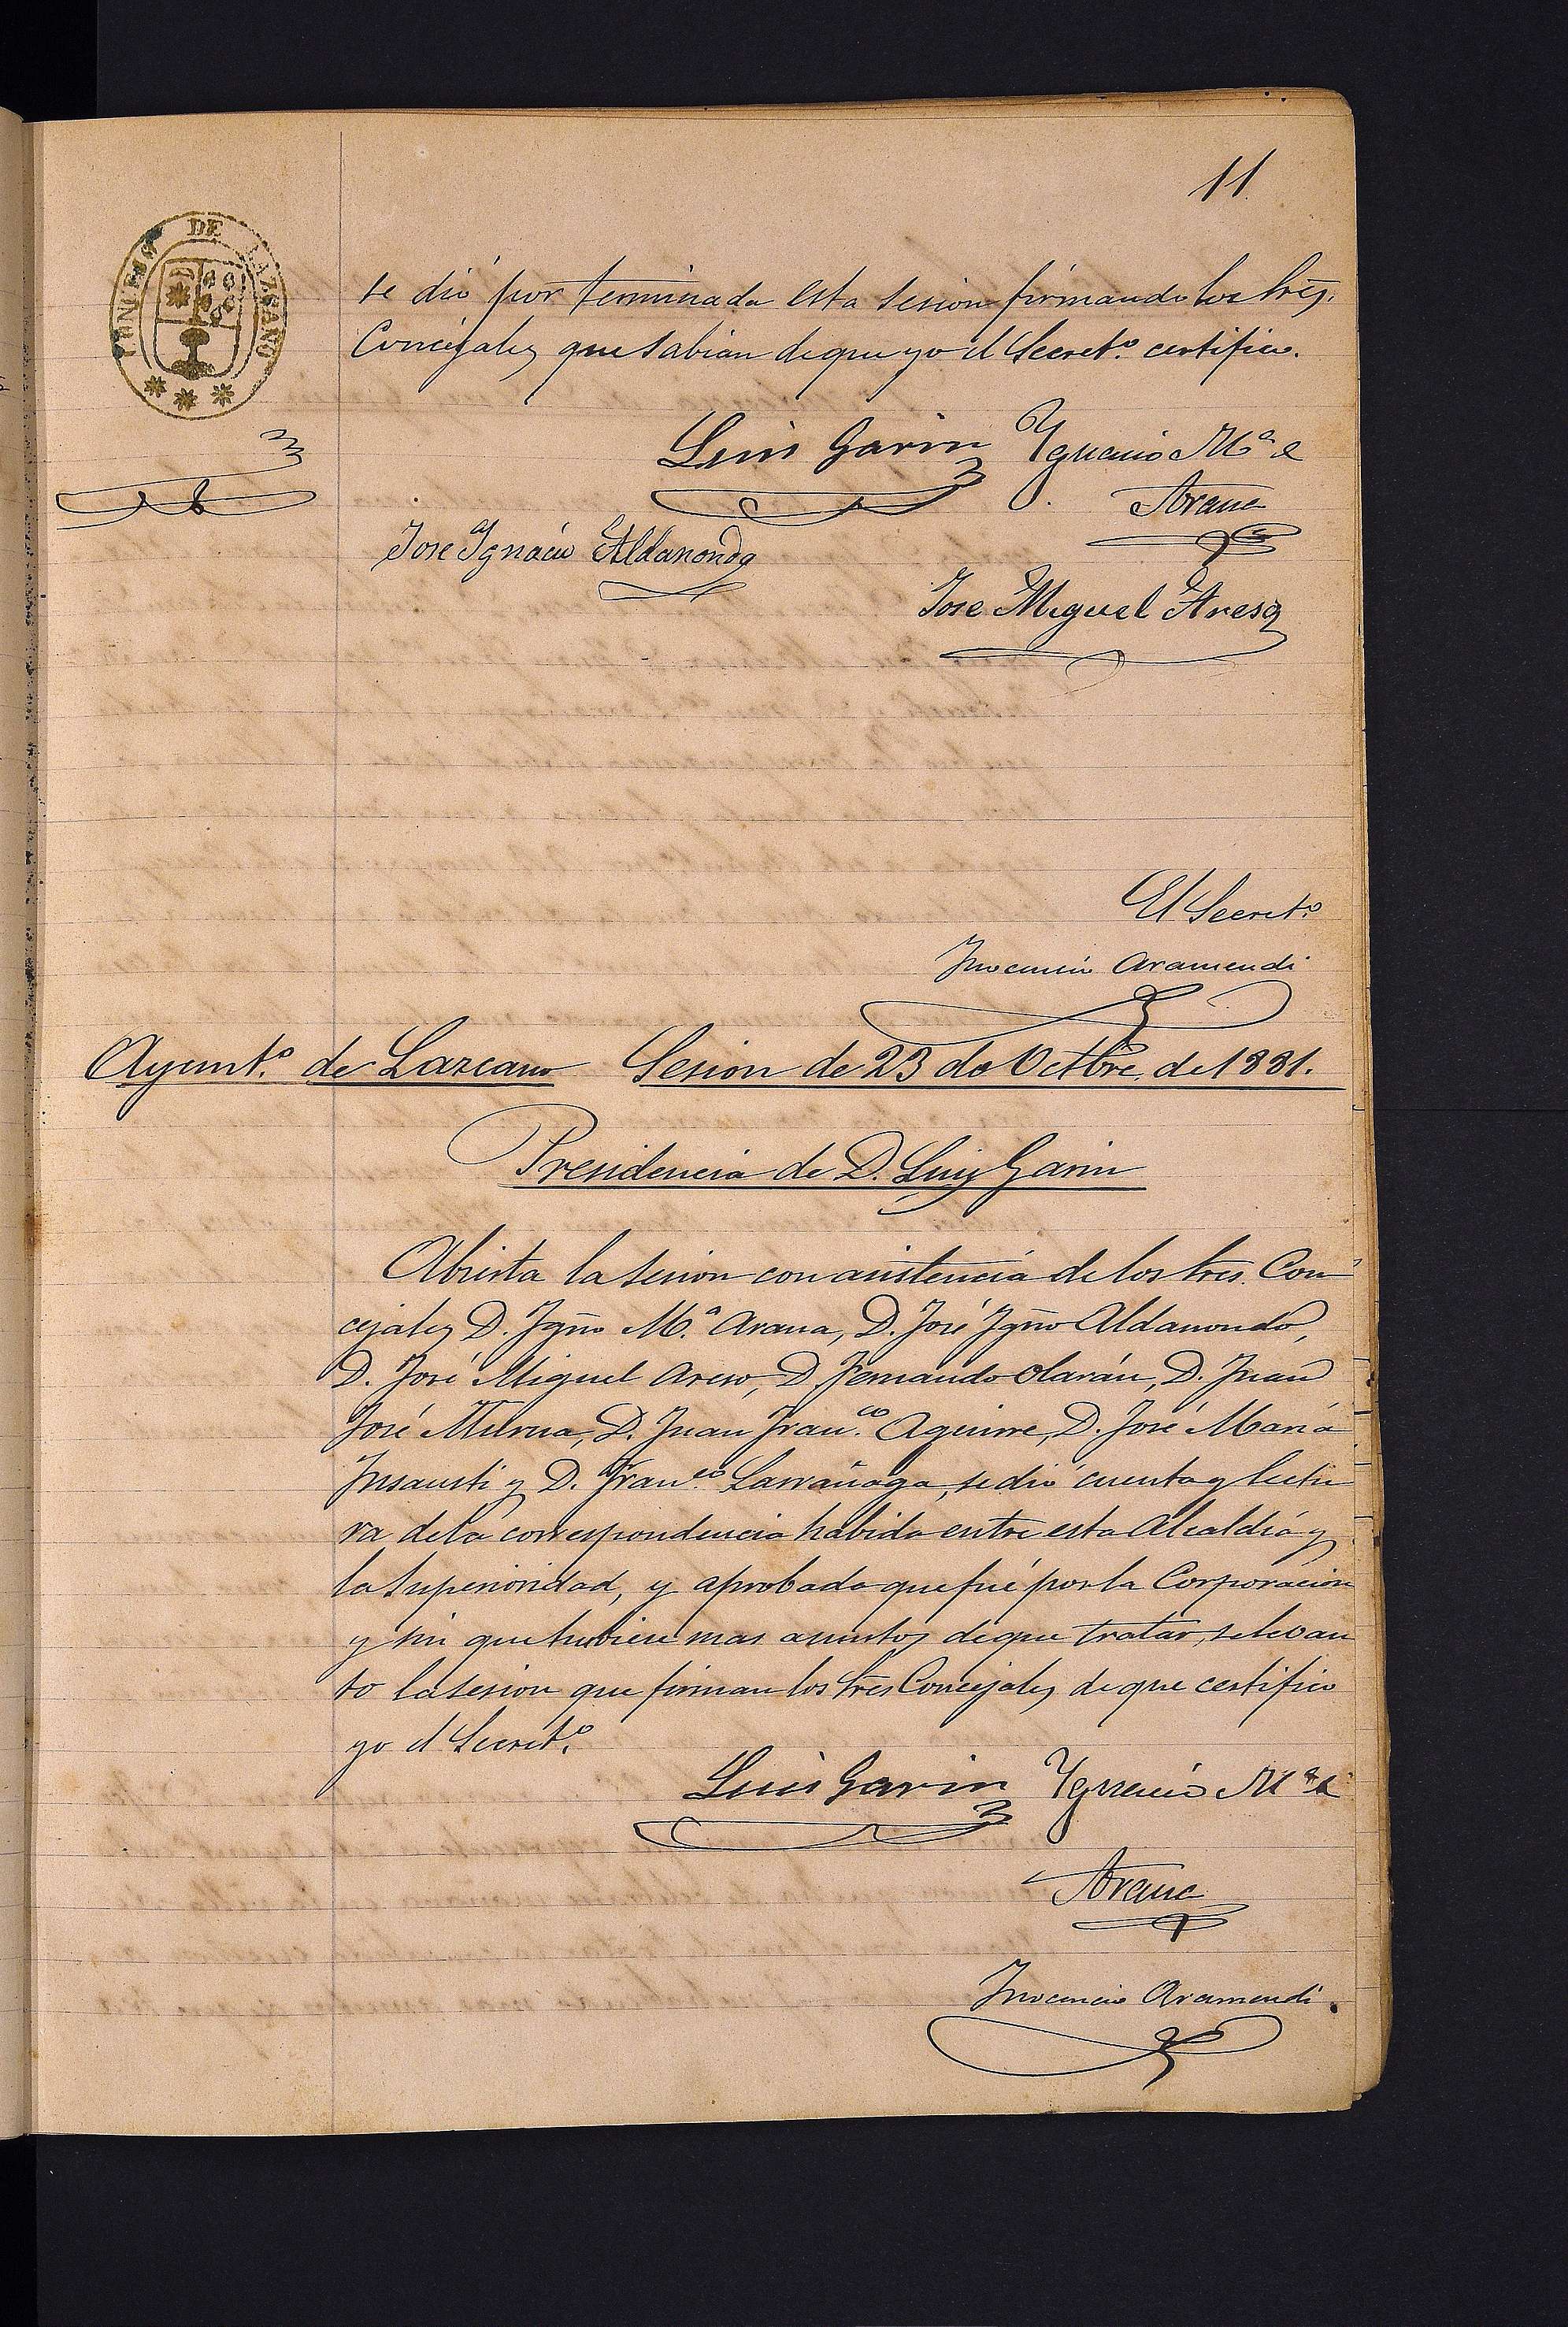 11
CONCEJO DE LAZCANO
se dió por terminada esta sesion firmando los Sres.
Concejales que sabian de que yo el Secret.º certifico.
Luis Garin Ygnacio Mª
Arana
Jose Ygnacio Aldanondo
Jose Miguel Areso
El Secret.º
Inocencio Aramendi
Ayunt.º de Lazcano Sesion de 23 de Octbre de 1881.
Presidencia de D. Luis Garin
Abierta la sesion con asistencia de los Sres. Con
cejales D. Ygno M.ª Arana, D. José Ygno Aldanondo,
D. José Miguel Areso, D. Fernando Olarán, D. Juan
José Mª D. Juan Fran.co Aguirre, D. José Maria
Insausti y D. Fran.co Larrañaga, se dió cuenta y lectu
ra de la correspondencia habida entre esta Alcaldía y
la Superioridad, y aprobada que fué por la Corporacion
y sin que hubiese mas asuntos de que tratar, se levan
to la sesion que firman los Sres Concejales de que certifico
yo el Secret.º
Luis Garin Ygnacio Mª
Arana
Inocencio Aramendi.